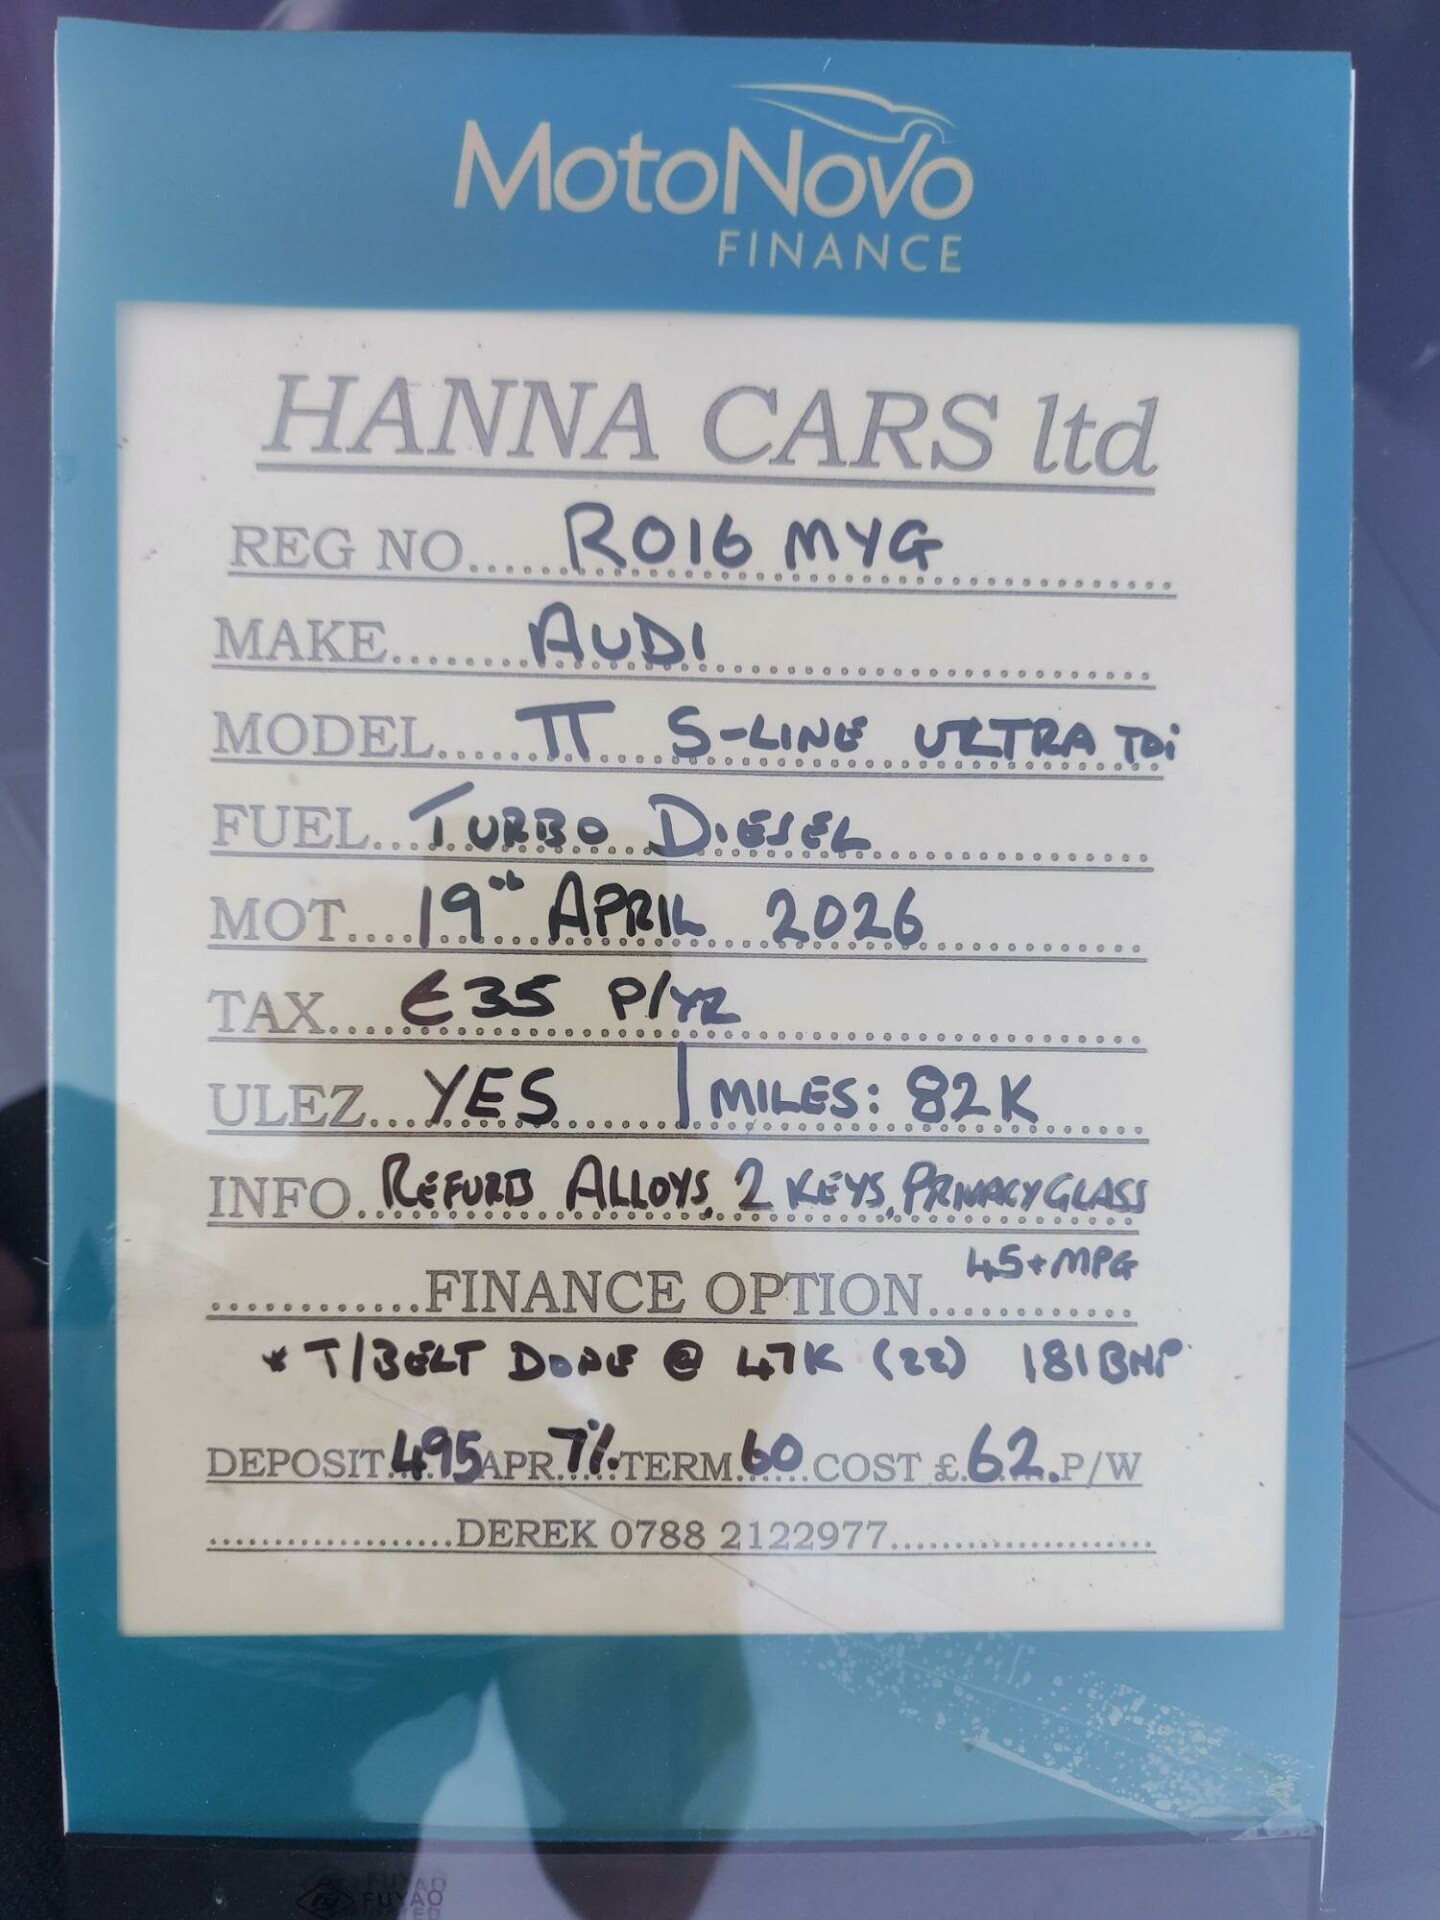 MotoNovo
FINANCE
HANNA CARS ltd
REG NO...... RO16 MYG
MAKE...... AUDI
MODEL...... TT S-LINE ULTRA TDi
FUEL...... TURBO DIESEL
MOT...... 19th APRIL 2026
TAX...... £35 P/YR
ULEZ...... YES | MILES: 82K
INFO...... REFURB ALLOYS, 2 KEYS, PRIVACY GLASS
45+MPG
............FINANCE OPTION............
* T/BELT DONE @ 47K (22) 181BHP
DEPOSIT 495 APR 7% TERM 60 COST £ 62. P/W
..................DEREK 0788 2122977....................
FUYAO